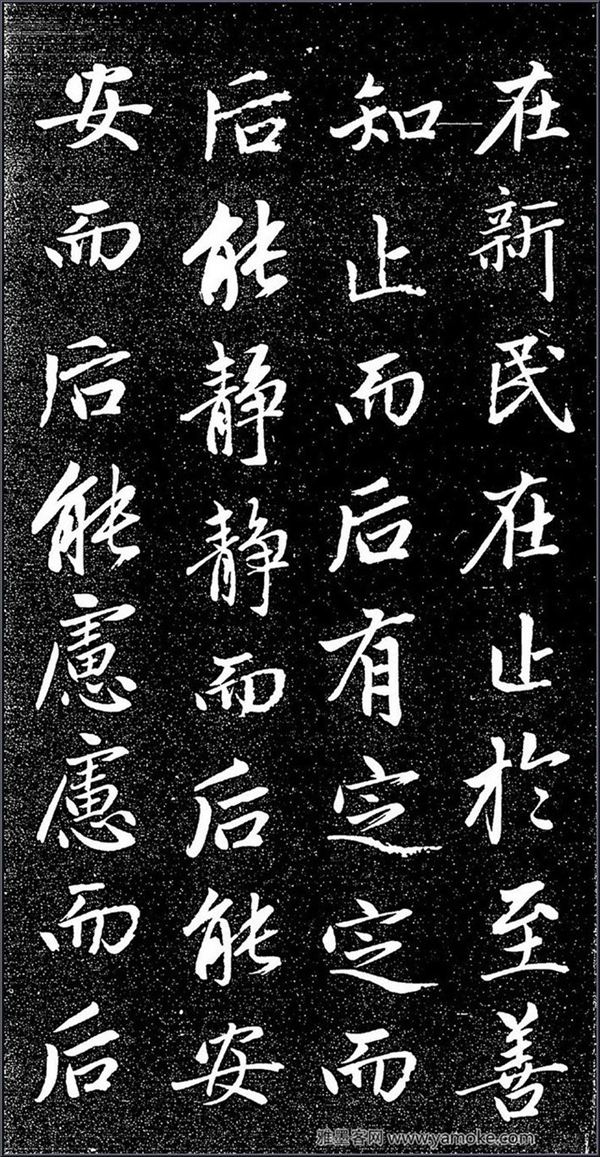 在新民在止於至善
知止而后有定定而
后能静静而后能安
安而后能慮慮而后
雅墨客网 www.yamoke.com